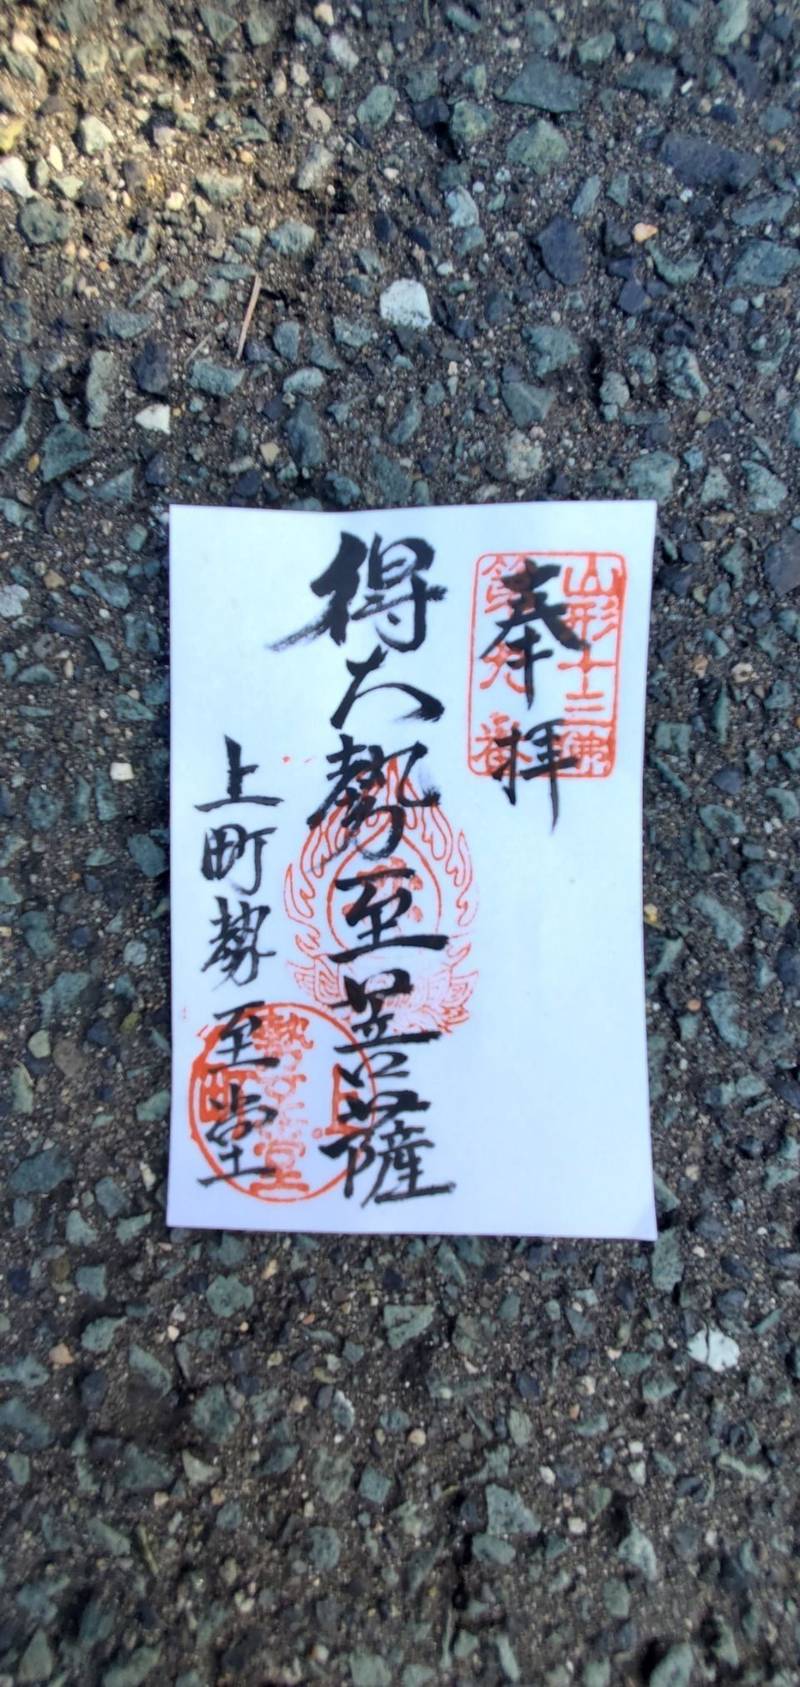 奉拝
山形十三佛
第九番
得大勢至菩薩
上町勢至堂
上町
勢至堂